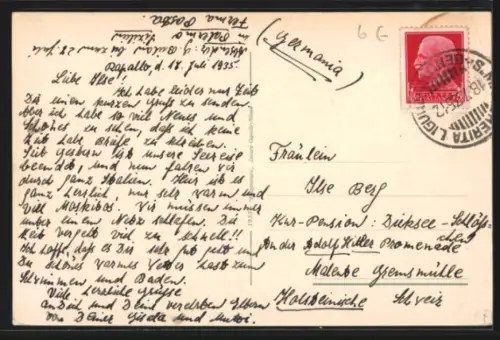 in Palermo
ferma Posta
Rapallo, d. 17. Juli 1935.
Liebe Ilse!
Ich habe leider nur Zeit
Dir einen kurzen Gruß zu senden.
Aber ich habe so viel Neues und
Schönes zu sehen, daß ich keine
Zeit habe Briefe zu schreiben.
Seit gestern ist unsere Seereise
beendet, und nun fahren wir
durch ganz Italien. Hier ist es
ganz herrlich nur sehr warm und
viel Moskitos. Wir müssen immer
unter einem Netz schlafen. Die
Zeit vergeht viel zu schnell!!
Ich hoffe, daß es Dir sehr gut geht und
Du schönes warmes Wetter hast zum
Schwimmen und Baden.
Viele herzliche Grüsse
an Dich und Deine verehrten Eltern
von Deiner Gisela und Mutti.
(Germania)
6 €
Fräulein
Ilse Berg
Kur-Pension: Dieksee-Schlöß-
chen
An der Adolf Hitler Promenade
Malente Gremsmühle
Holsteinische Schweiz